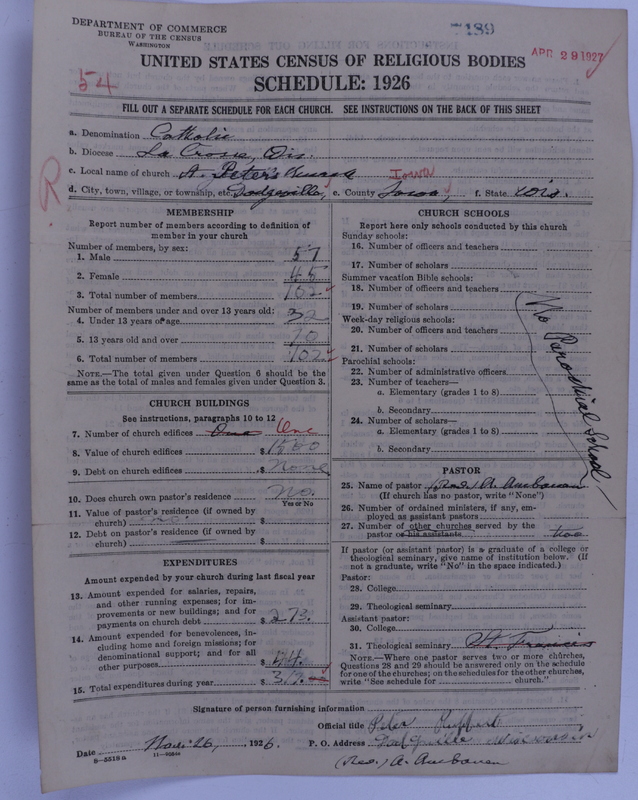 DEPARTMENT OF COMMERCE
BUREAU OF THE CENSUS
WASHINGTON
7189
APR 29 1927
UNITED STATES CENSUS OF RELIGIOUS BODIES
SCHEDULE: 1926
54
FILL OUT A SEPARATE SCHEDULE FOR EACH CHURCH. SEE INSTRUCTIONS ON THE BACK OF THIS SHEET
a. Denomination Catholic
b. Diocese La Crosse, Wis.
c. Local name of church St. Peter's Iowa
R
d. City, town, village, or township, etc. Dodgeville, e. County Iowa, f. State Wis.
MEMBERSHIP
Report number of members according to definition of member in your church
Number of members, by sex:
1. Male 57
2. Female 45
3. Total number of members 102
Number of members under and over 13 years old:
4. Under 13 years of age 32
5. 13 years old and over 70
6. Total number of members 102
NOTE.—The total given under Question 6 should be the
same as the total of males and females given under Question 3.
CHURCH BUILDINGS
See instructions, paragraphs 10 to 12
7. Number of church edifices One One
8. Value of church edifices $ 1500
9. Debt on church edifices $ None
10. Does church own pastor's residence No.
Yes or No
11. Value of pastor's residence (if owned by
church) no. $
12. Debt on pastor's residence (if owned by
church) $
EXPENDITURES
Amount expended by your church during last fiscal year
13. Amount expended for salaries, repairs,
and other running expenses; for im-
provements or new buildings; and for
payments on church debt $ 273.
14. Amount expended for benevolences, in-
cluding home and foreign missions; for
denominational support; and for all
other purposes $ 44.
15. Total expenditures during year $ 317.
CHURCH SCHOOLS
Report here only schools conducted by this church
Sunday schools:
16. Number of officers and teachers
17. Number of scholars
Summer vacation Bible schools:
18. Number of officers and teachers
19. Number of scholars
Week-day religious schools:
20. Number of officers and teachers
21. Number of scholars
Parochial schools:
22. Number of administrative officers
23. Number of teachers—
a. Elementary (grades 1 to 8)
b. Secondary
24. Number of scholars—
a. Elementary (grades 1 to 8)
b. Secondary
No Parochial School
PASTOR
25. Name of pastor A.
(If church has no pastor, write "None")
26. Number of ordained ministers, if any, em-
ployed as assistant pastors
27. Number of other churches served by the
pastor or his assistants two
If pastor (or assistant pastor) is a graduate of a college or
theological seminary, give name of institution below. (If
not a graduate, write "No" in the space indicated.)
Pastor:
28. College
29. Theological seminary
Assistant pastor:
30. College
31. Theological seminary St. Francis
NOTE.—Where one pastor serves two or more churches,
Questions 28 and 29 should be answered only on the schedule
for one of the churches; on the schedules for the other churches,
write "See schedule for church."
Signature of person furnishing information
Official title Peter Ruppert
Date Nov. 26, 1926 P. O. Address Dodgeville Wisconsin
8-5518a
(Rev.) A.